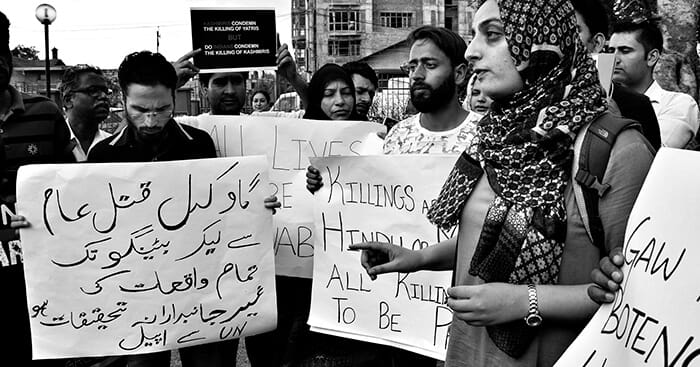 KASHMIRIS CONDEMN
THE KILLING OF YATRIS
BUT
DO INDIANS CONDEMN
THE KILLING OF KASHMIRIS
گاو کدل قتل عام
سے لیکر بیٹینگو تک
تمام واقعات کی
غیر جانبدارانہ تحقیقات ہو
UN سے اپیل
ALL LIVES
BE
KILLINGS
HINDU OR
ALL KILLIN
TO BE
GAW
BOTENG